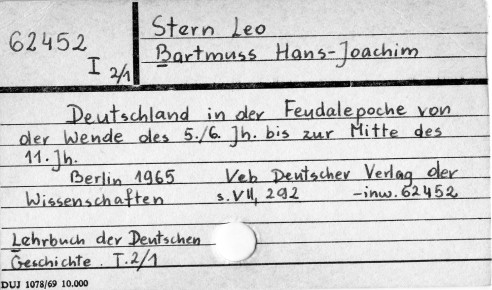 62452
I 2/1
Stern Leo
Bartmuss Hans-Joachim
Deutschland in der Feudalepoche von
der Wende des 5./6. Jh. bis zur Mitte des
11. Jh.
Berlin 1965 Veb Deutscher Verlag der
Wissenschaften s. VII, 292 -inw. 62452
Lehrbuch der Deutschen
Geschichte. T. 2/1
DUJ 1078/69 10.000